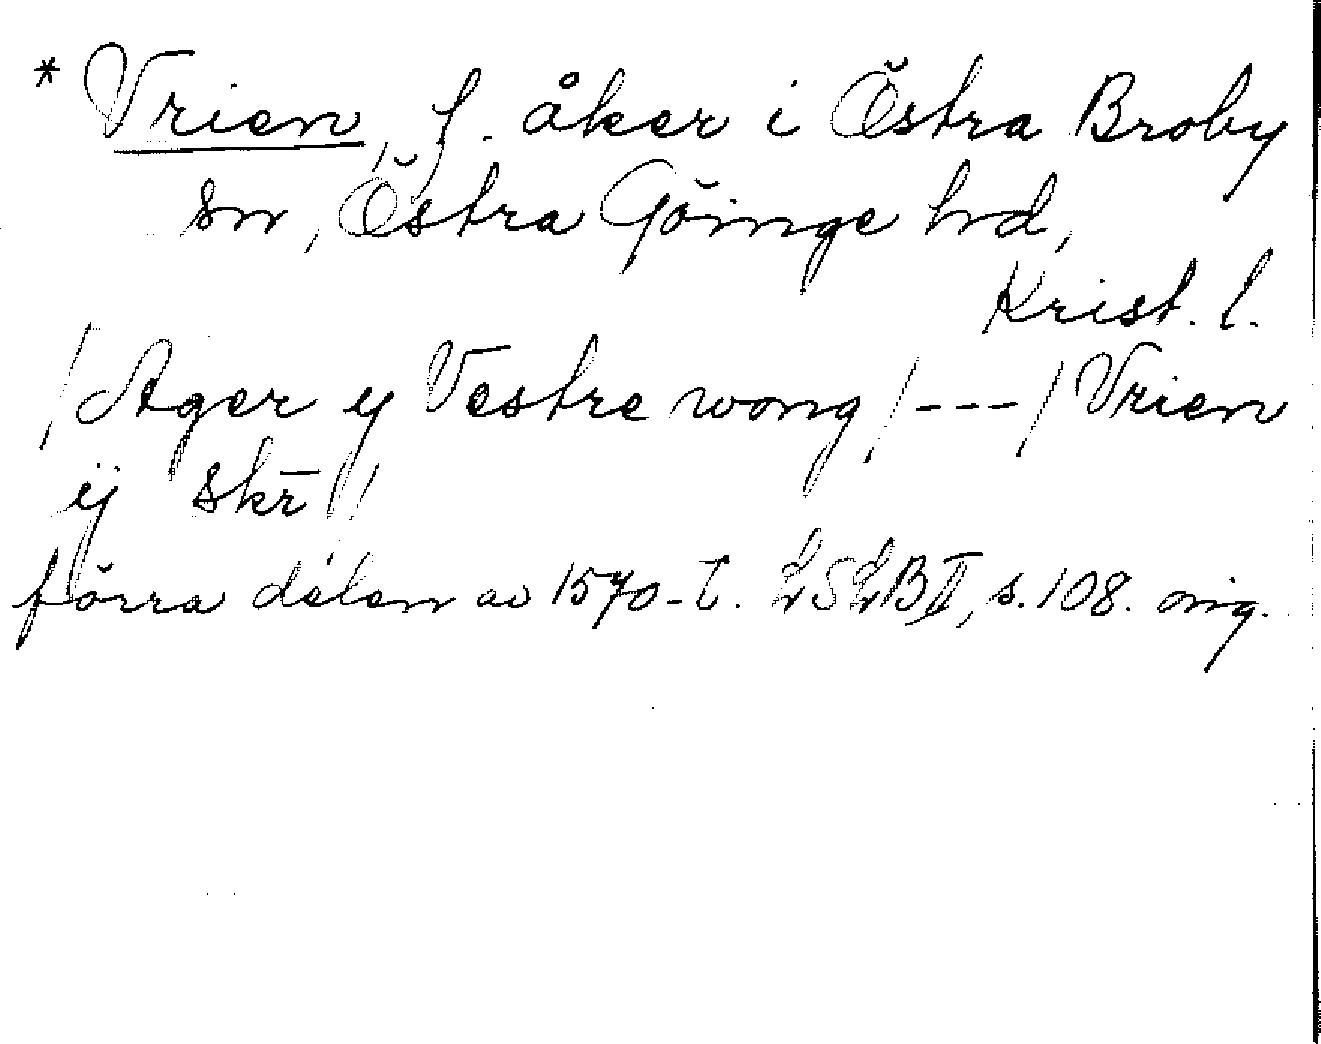 * Vrien, f. åker i Östra Broby
sn, Östra Göinge hd,
Krist. l.
/Ager y Vestre wong/---/Vrien
ÿ skr̄//
förra delen av 1570-t. LSLB II, s. 108. orig.